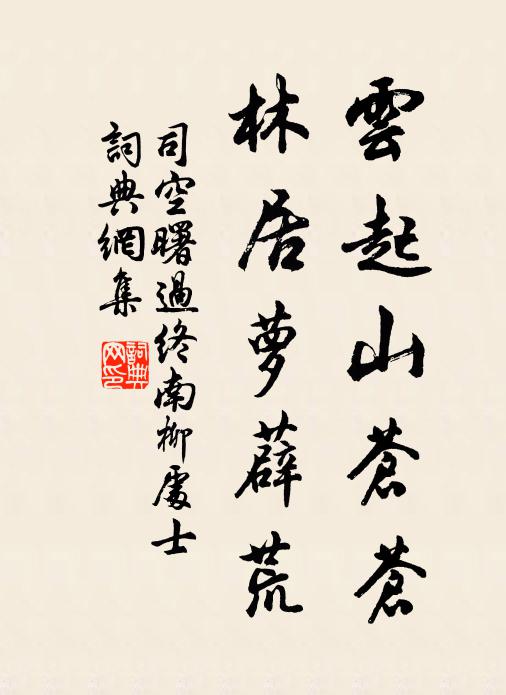 雲起山蒼蒼
林居蘿薜荒
司空曙過終南柳處士
詞典網集
詞典網印